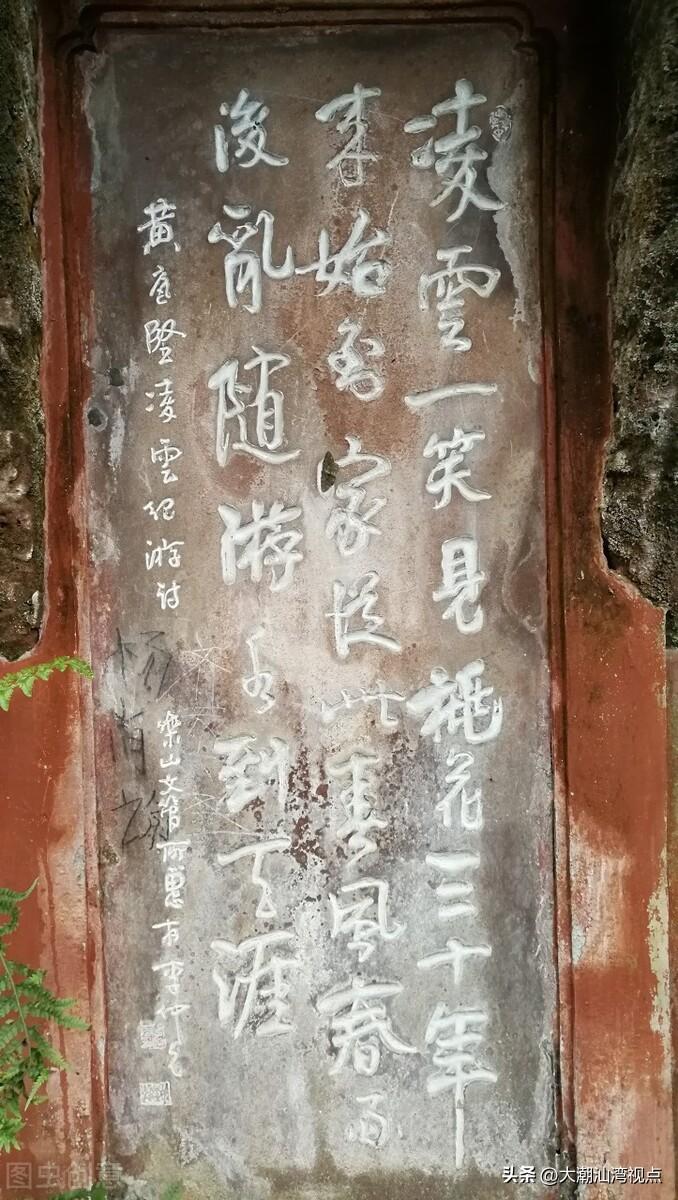 凌雲一笑見桃花三十年
来始到家従此春風春雨
後亂随游水到天涯
黄庭堅凌雲纪游詩
樂山文管所惠存李仲
图虫创意
头条 @大潮汕湾视点